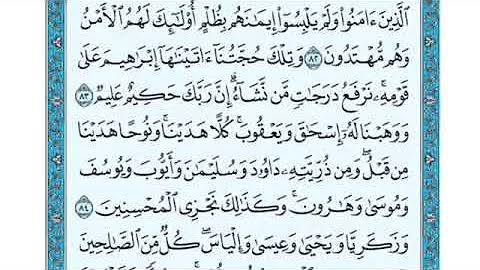 ٱلَّذِينَ ءَامَنُوا۟ وَلَمْ يَلْبِسُوٓا۟ إِيمَٰنَهُم بِظُلْمٍ أُو۟لَٰٓئِكَ لَهُمُ ٱلْأَمْنُ
وَهُم مُّهْتَدُونَ ٨٢ وَتِلْكَ حُجَّتُنَآ ءَاتَيْنَٰهَآ إِبْرَٰهِيمَ عَلَىٰ
قَوْمِهِۦ ۚ نَرْفَعُ دَرَجَٰتٍ مَّن نَّشَآءُ ۗ إِنَّ رَبَّكَ حَكِيمٌ عَلِيمٌ ٨٣
وَوَهَبْنَا لَهُۥٓ إِسْحَٰقَ وَيَعْقُوبَ ۚ كُلًّا هَدَيْنَا ۚ وَنُوحًا هَدَيْنَا
مِن قَبْلُ ۖ وَمِن ذُرِّيَّتِهِۦ دَاوُۥدَ وَسُلَيْمَٰنَ وَأَيُّوبَ وَيُوسُفَ
وَمُوسَىٰ وَهَٰرُونَ ۚ وَكَذَٰلِكَ نَجْزِى ٱلْمُحْسِنِينَ ٨٤
وَزَكَرِيَّا وَيَحْيَىٰ وَعِيسَىٰ وَإِلْيَاسَ ۖ كُلٌّ مِّنَ ٱلصَّٰلِحِينَ